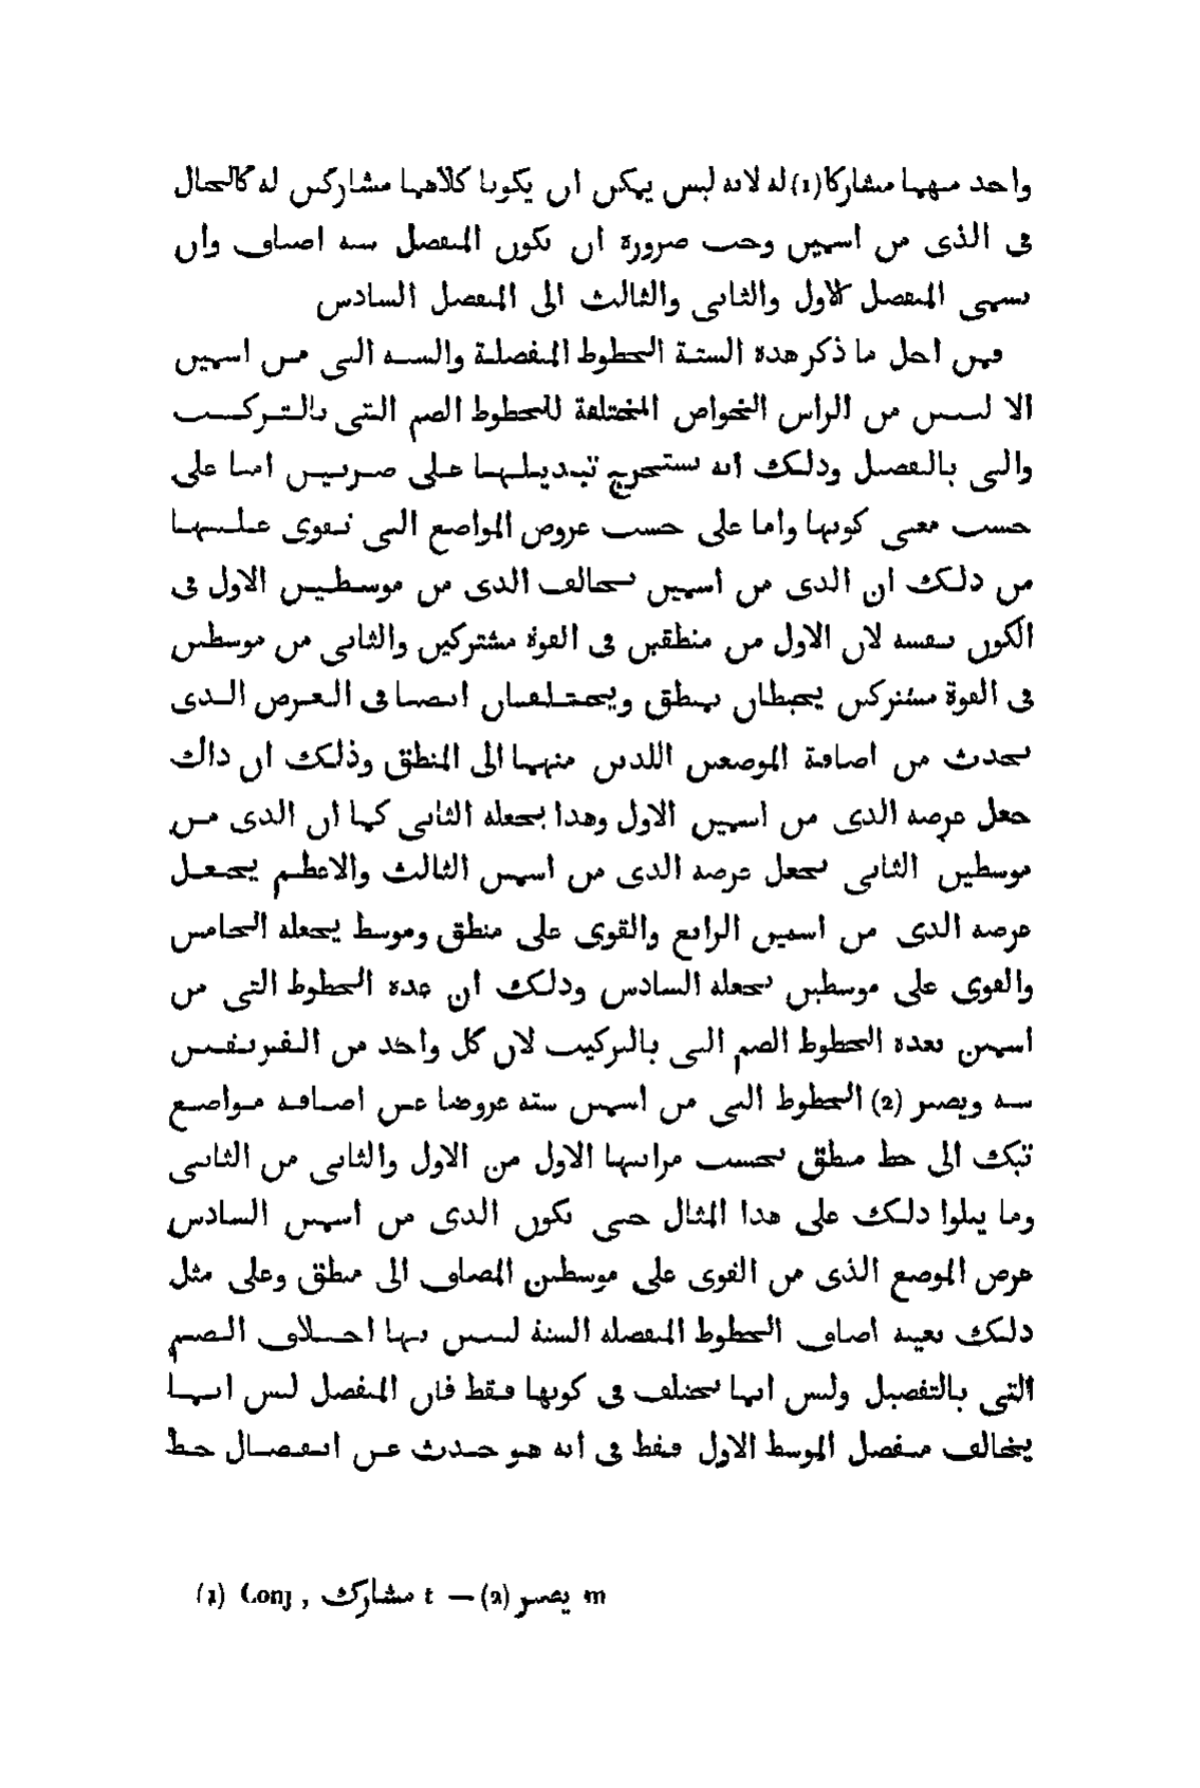 واحد منهما مشاركا(1) له لانه ليس يمكن ان يكونا كلاهما مشاركين له كالحال
فى الذى من اسمين وجب ضرورة ان تكون المنفصل ستة اصناف وان
يسمى المنفصل الاول والثانى والثالث الى المنفصل السادس
فمن اجل ما ذكر هذه الستة الخطوط المنفصلة والستة التى من اسمين
الا ليبين من الراس الخواص المختلفة للخطوط الصم التى بالتركيب
والتى بالتفصيل وذلك انه يستخرج تبديلها على ضربين اما على
حسب معنى كونها واما على حسب عروض المواضع التى تقوى عليها
من ذلك ان الذى من اسمين يخالف الذى من موسطين الاول فى
الكون نفسه لان الاول من منطقين فى القوة مشتركين والثانى من موسطين
فى القوة مشتركين يحيطان بمنطق ويختلفان ايضا فى العرض الذى
يحدث من اضافة الموضعين اللذين منهما الى المنطق وذلك ان ذاك
جعل عرضه الذى من اسمين الاول وهذا يجعله الثانى كما ان الذى من
موسطين الثانى يجعل عرضه الذى من اسمين الثالث والاعظم يجعل
عرضه الذى من اسمين الرابع والقوى على منطق وموسط يجعله الخامس
والقوى على موسطين يجعله السادس وذلك ان عدة الخطوط التى من
اسمين بعدة الخطوط الصم التى بالتركيب لان كل واحد من الفريقين
ستة ويصير (2) الخطوط التى من اسمين ستة عروضا عن اضافة مواضع
تيك الى خط منطق بحسب مراتبها الاول من الاول والثانى من الثانى
وما يتلوا ذلك على هذا المثال حتى يكون الذى من اسمين السادس
عرض الموضع الذى من القوى على موسطين المضاف الى منطق وعلى مثل
ذلك بعينه اضاف الخطوط المنفصلة الستة ليبين بها اختلاف الصم
التى بالتفصيل وليس انها تختلف فى كونها فقط فان المنفصل ليس انما
يخالف منفصل الموسط الاول فقط فى انه هو حدث عن انفصال خط
(1) Conj, مشارك t — (2) يصير m